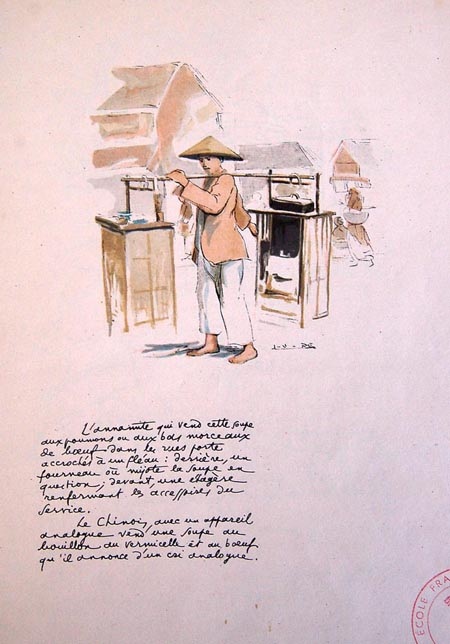 L-V-DE
L'annamite qui vend cette soupe
aux poumons ou aux bas morceaux
de bœuf dans les rues porte
accrochés à un fléau : derrière, un
fourneau où mijote la soupe en
question ; devant une étagère
renfermant les accessoires du
service.
Le Chinois, avec un appareil
analogue vend une soupe au
bouillon au vermicelle et au bœuf
qu'il annonce d'un cri analogue.
ECOLE FRA